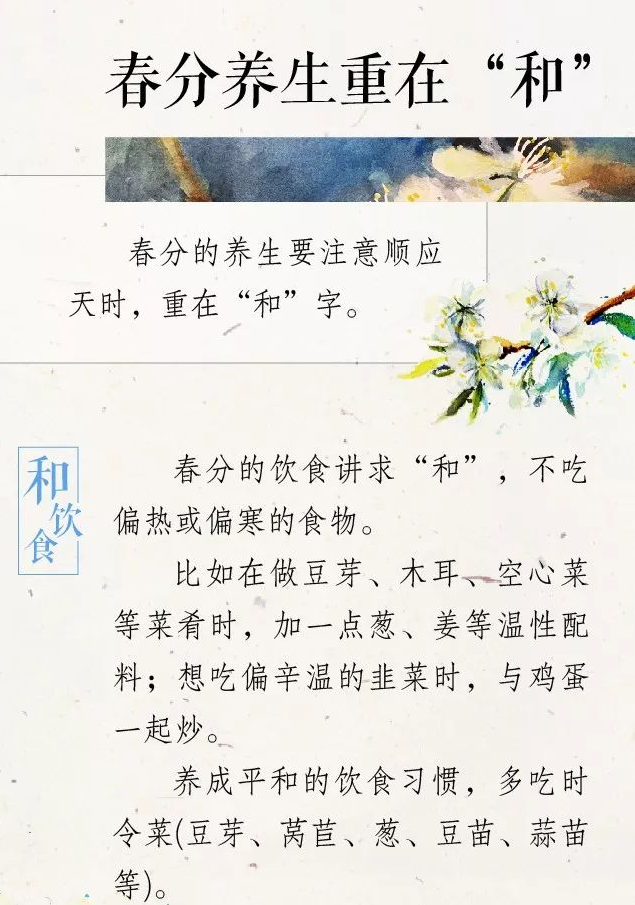 春分养生重在“和”
春分的养生要注意顺应
天时，重在“和”字。
和饮食
春分的饮食讲求“和”，不吃
偏热或偏寒的食物。
比如在做豆芽、木耳、空心菜
等菜肴时，加一点葱、姜等温性配
料；想吃偏辛温的韭菜时，与鸡蛋
一起炒。
养成平和的饮食习惯，多吃时
令菜(豆芽、莴苣、葱、豆苗、蒜苗
等)。